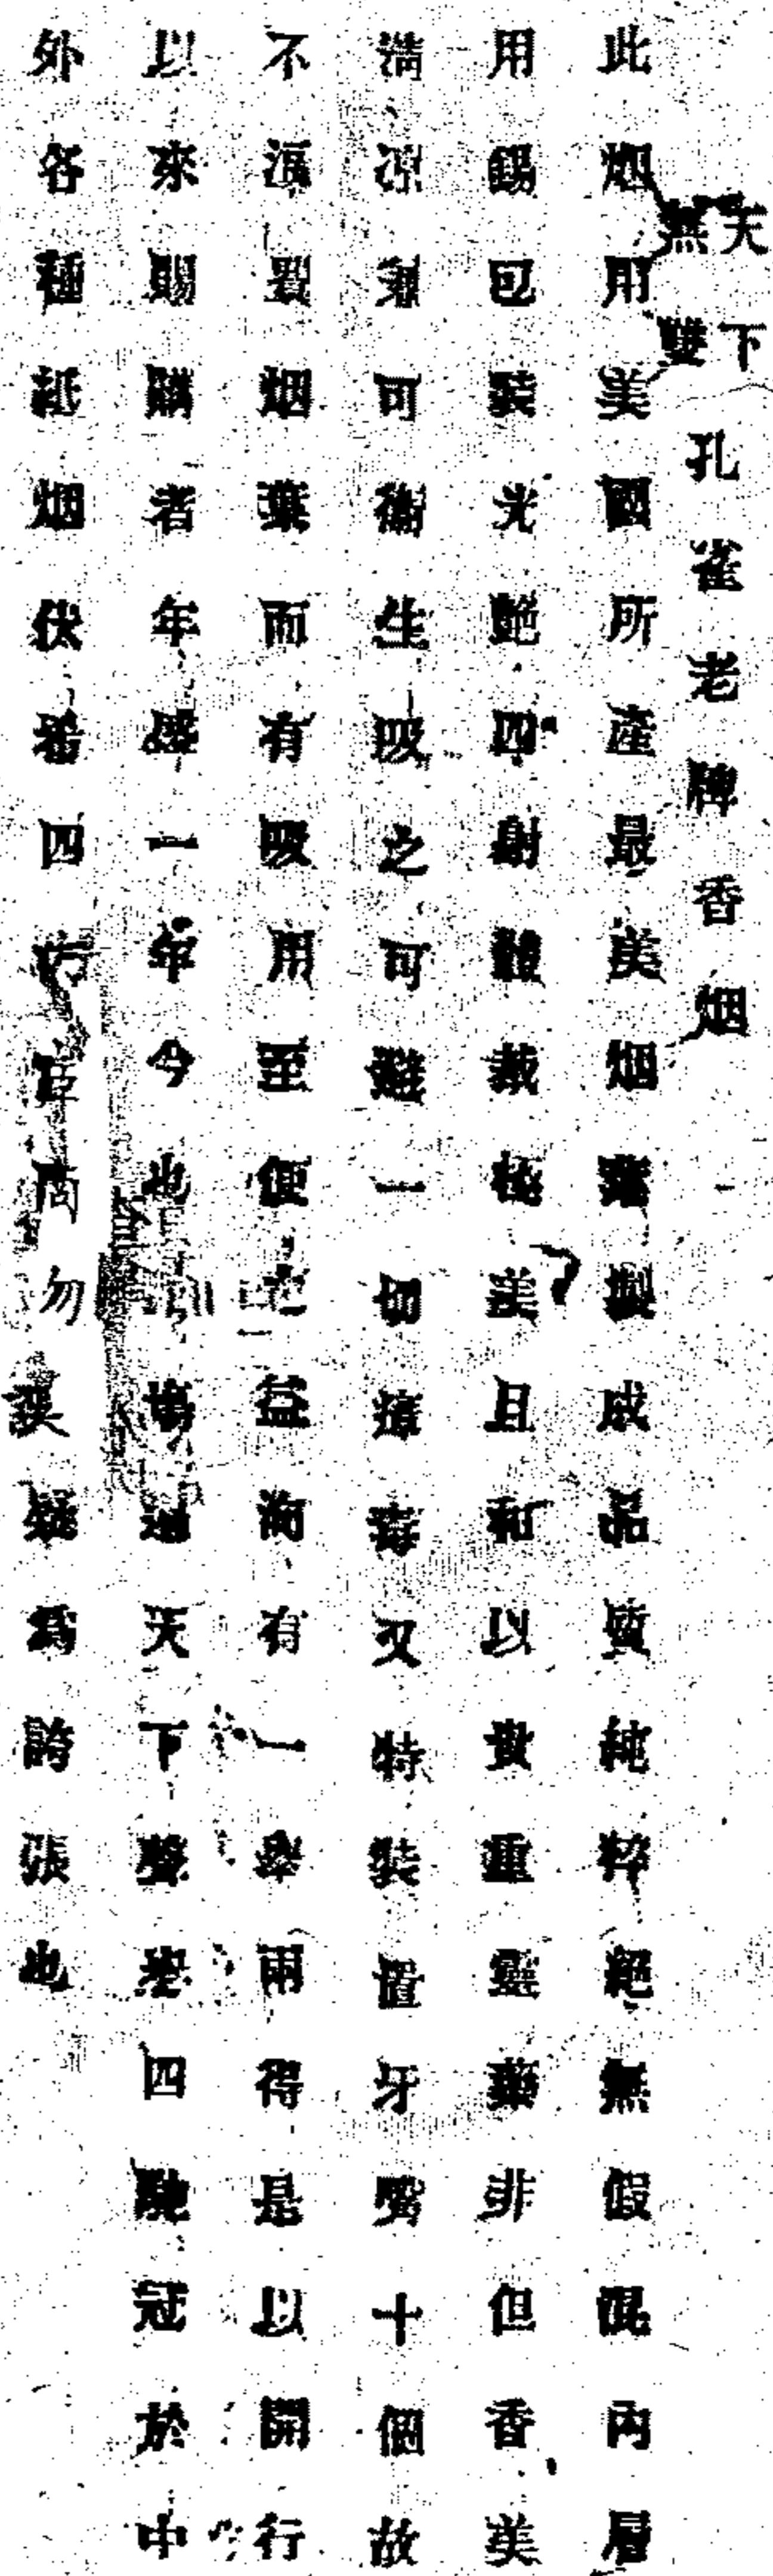 天下無雙孔雀老牌香烟
此烟用美國所產最美烟葉製成品質純粹絕無假混內層
用錫包裝光艷四射體裁極美且和以貴重靈藥非但香美
淸凉兼可衞生吸之可避一切瘴毒又特裝置牙嘴十個故
不濕裂烟葉而有吸用至便之益洵有一舉兩得是以開行
以來賜購者年盛一年今也馳遍天下聲譽四聽冠於中
外各種紙烟伏希四方官商勿誤疑爲誇張也